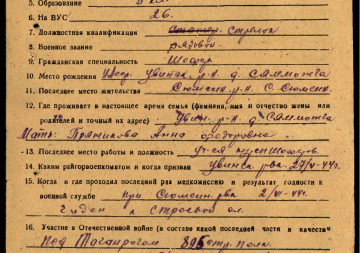 5. Образование
6. На ВУС 26.
7. Должностная квалификация стрелок
8. Военное звание рядовой
9. Гражданская специальность Шофер
10. Место рождения Увинск. р-н д. Сямпотга
11. Последнее место жительства Сюмсин. р-н. с. Сюмси
12. Где проживает в настоящее время семья (фамилия, имя и отчество жены или
родителей и точный их адрес) Увин. р-н, д. Сямпотга
Мать Анна Федоровна
13. Последнее место работы и должность
14. Каким райгорвоенкоматом и когда призван Увинск. рвк. 27/VI-44г.
15. Когда и где проходил последней раз медкомиссию и результат годности к
военной службе при Сюмсин. рвк 2/VI-44г.
годен к строевой сл.
16. Участие в Отечественной войне (в составе какой последней части и в качестве
Под Таганрогом 895 стр. полк